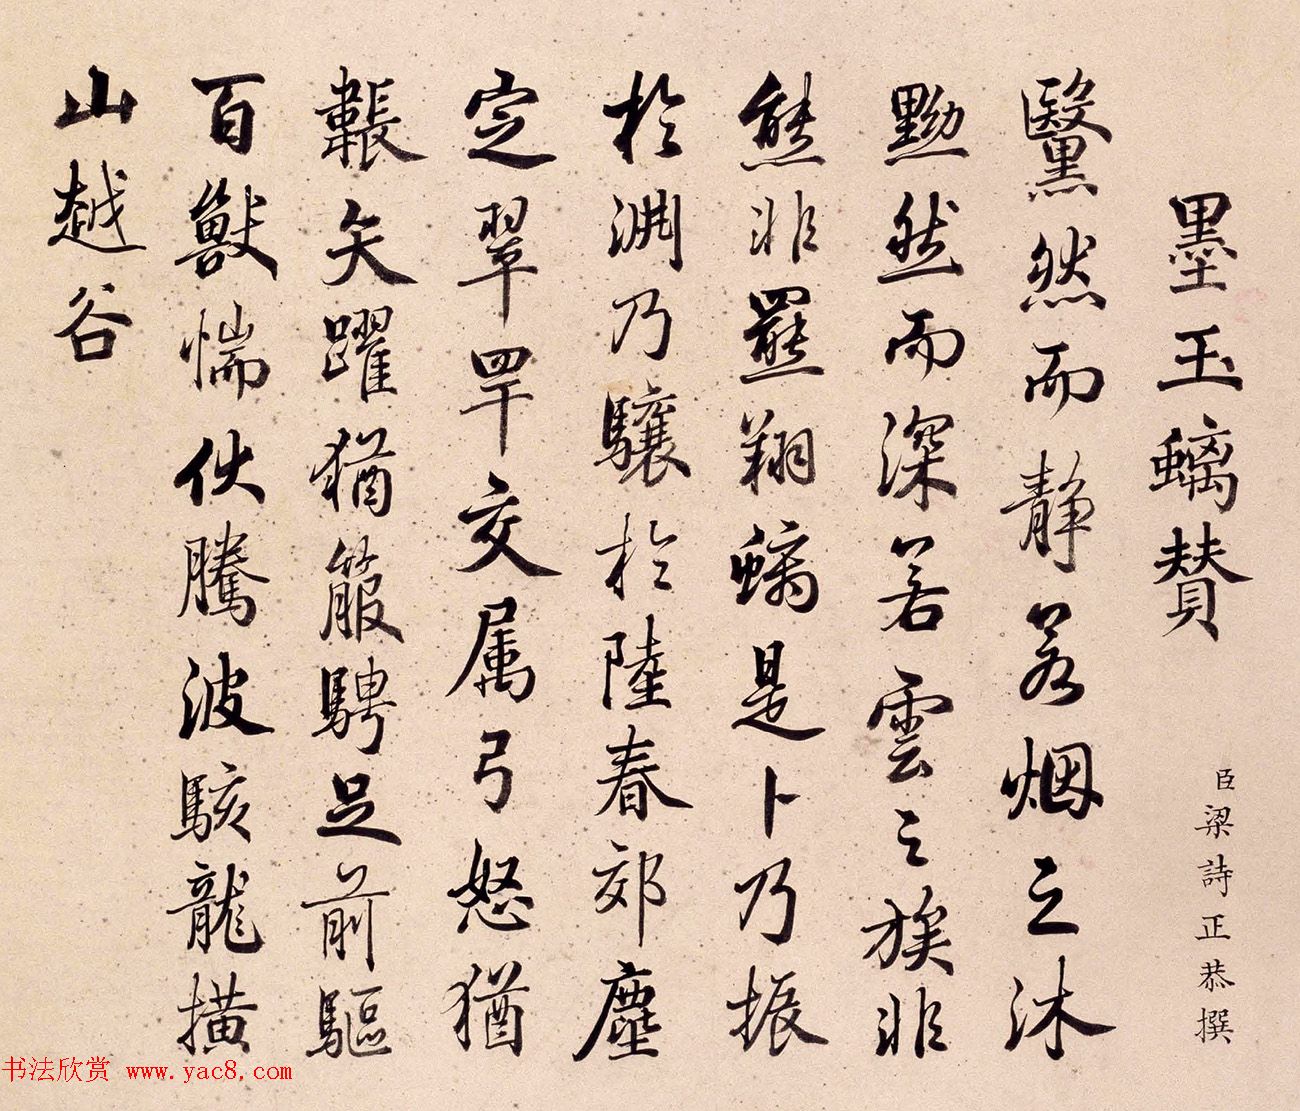 墨玉螭賛
臣梁詩正恭撰
黳然而靜若烟之沐
黝然而深若雲之族非
熊非羆翔螭是卜乃振
於淵乃驤於陸春郊塵
定翠罕交属弓怒猶
韔矢躍猶箙騁足前驅
百獸惴伏騰波駭龍橫
山越谷
书法欣赏 www.yac8.com